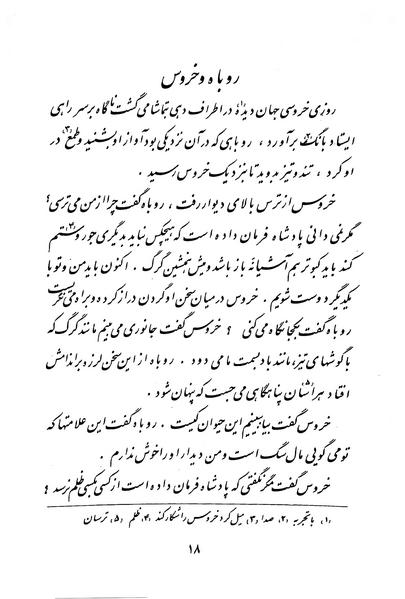 روباه و خروس
روزی خروسی جهان دیده۱ در اطراف دهی تماشا می گشت ناگاه بر سر راهی
ایستاد بانگ۲ برآورد ، روباهی که در آن نزدیکی بود آواز او بشنید و طمع۳ در
او کرد ، تند و تیز بدوید تا نزدیک خروس رسید .
خروس از ترس بالای دیوار رفت ، روباه گفت چرا از من می ترسی ؟
مگر نمی دانی پادشاه فرمان داده است که هیچکس نباید بدیگری جور و ستم۴
کند باید کبوتر هم آشیانهٔ باز باشد و میش همنشین گرگ . اکنون باید من و تو با
یکدیگر دوست شویم . خروس در میان سخن او گردن دراز کرده و براه می نگریست
روباه گفت بکجا نگاه می کنی ؟ خروس گفت جانوری می بینم مانند گرگ که
با گوشهای تیز ، مانند باد بسمت ما می دود . روباه از این سخن لرزه بر اندامش
افتاد هراسان۵ پناهگاهی می جست که پنهان شود .
خروس گفت بیا ببینیم این حیوان کیست . روباه گفت این علامتها که
تو می گویی مال سگ است و من دیدار او را خوش ندارم .
خروس گفت مگر نگفتی که پادشاه فرمان داده است از کسی بکسی ظلم نرسد ؟
۱، با تجربه ۲، صدا ۳، میل کرد خروس را شکار کند ۴، ظلم ۵، ترسان
۱۸